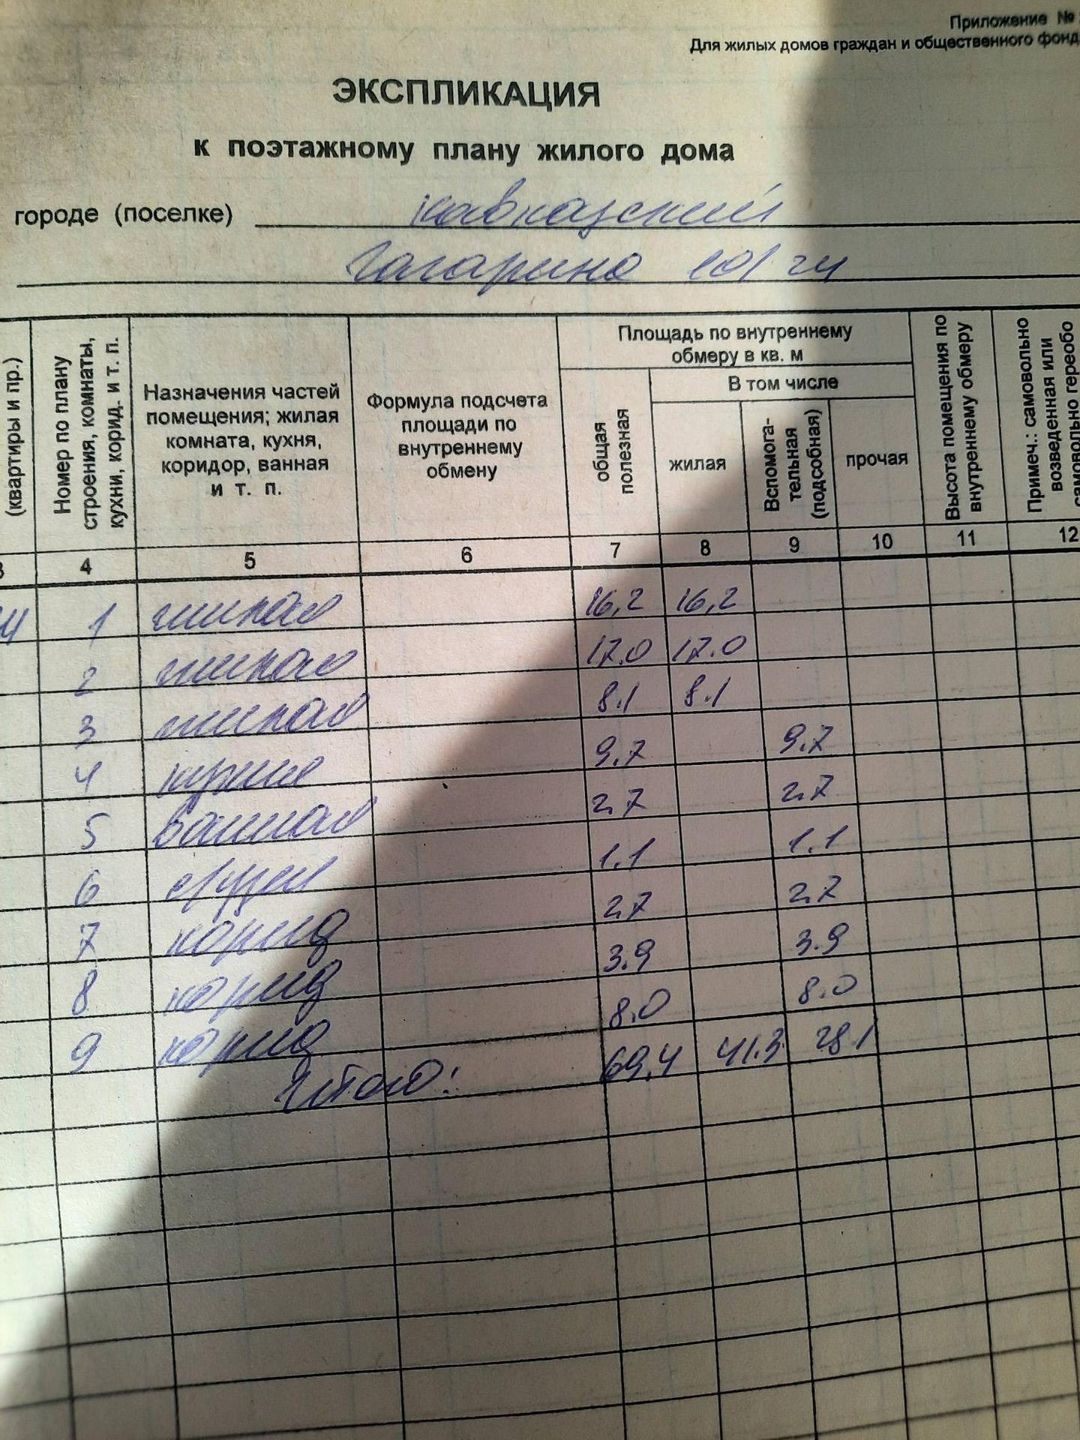 Приложение №
Для жилых домов граждан и общественного фонд
ЭКСПЛИКАЦИЯ
к поэтажному плану жилого дома
городе (поселке) Кавказский
Гагарина 101 24
(квартиры и пр.)
Номер по плану строения, комнаты, кухни, корид. и т. п.
Назначения частей помещения; жилая комната, кухня, коридор, ванная и т. п.
Формула подсчета площади по внутреннему обмену
Площадь по внутреннему обмеру в кв. м
общая полезная
В том числе
жилая
Вспомога-тельная (подсобная)
прочая
Высота помещения по внутреннему обмеру
Примеч.: самовольно возведенная или самовольно геребо
3 4 5 6 7 8 9 10 11 12
24 1 жилая 16,2 16,2
2 жилая 17.0 17.0
3 жилая 8.1 8.1
4 кухня 9.7 9.7
5 ванная 2.7 2.7
6 1.1 1.1
7 корид 2.7 2.7
8 корид 3.9 3.9
9 корид 8.0 8.0
Итого: 69,4 41.3 28.1